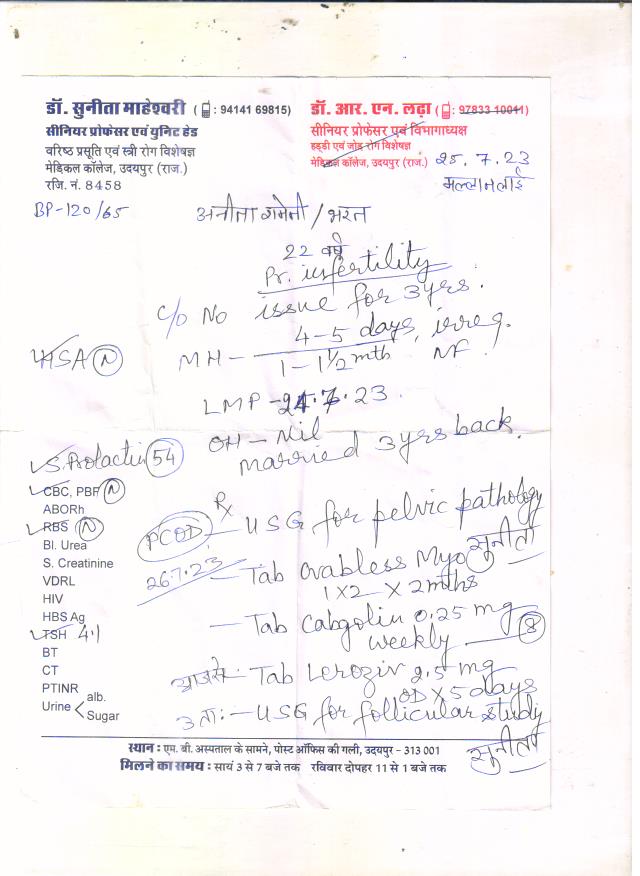 डॉ. सुनीता माहेश्वरी ( : 94141 69815)
सीनियर प्रोफेसर एवं युनिट हेड
वरिष्ठ प्रसूति एवं स्त्री रोग विशेषज्ञ
मेडिकल कॉलेज, उदयपुर (राज.)
रजि. नं. 8458
डॉ. आर. एन. लढ़ा ( : 97833 10041)
सीनियर प्रोफेसर एवं विभागाध्यक्ष
हड्डी एवं जोड़ रोग विशेषज्ञ
मेडिकल कॉलेज, उदयपुर (राज.)
25.7.23
BP-120/65
अनीता / भरत
22 वर्ष
Pr. infertility
C/O No issue for 3yrs.
MH - 4-5 days, irreg.
1-1½ mth NF
HSA N
LMP - 24.7.23.
OH - Nil
married 3yrs back.
S. Prolactin 54
CBC, PBF N
ABORh
RBS N
Bl. Urea
S. Creatinine
VDRL
HIV
HBS Ag
TSH 4.1
BT
CT
PTINR
Urine < alb.
Sugar
Rx
PCOD - USG for pelvic pathology
सुनीता
26.7.23
- Tab Ovabless Myo
1x2 x 2mths
- Tab Cabgolin 0.25 mg
weekly - 8
आज से:- Tab Lerozin 2.5 mg
OD x 5 days
3 ता:- USG for follicular study
सुनीता
स्थान : एम. बी. अस्पताल के सामने, पोस्ट ऑफिस की गली, उदयपुर - 313 001
मिलने का समय : सायं 3 से 7 बजे तक रविवार दोपहर 11 से 1 बजे तक